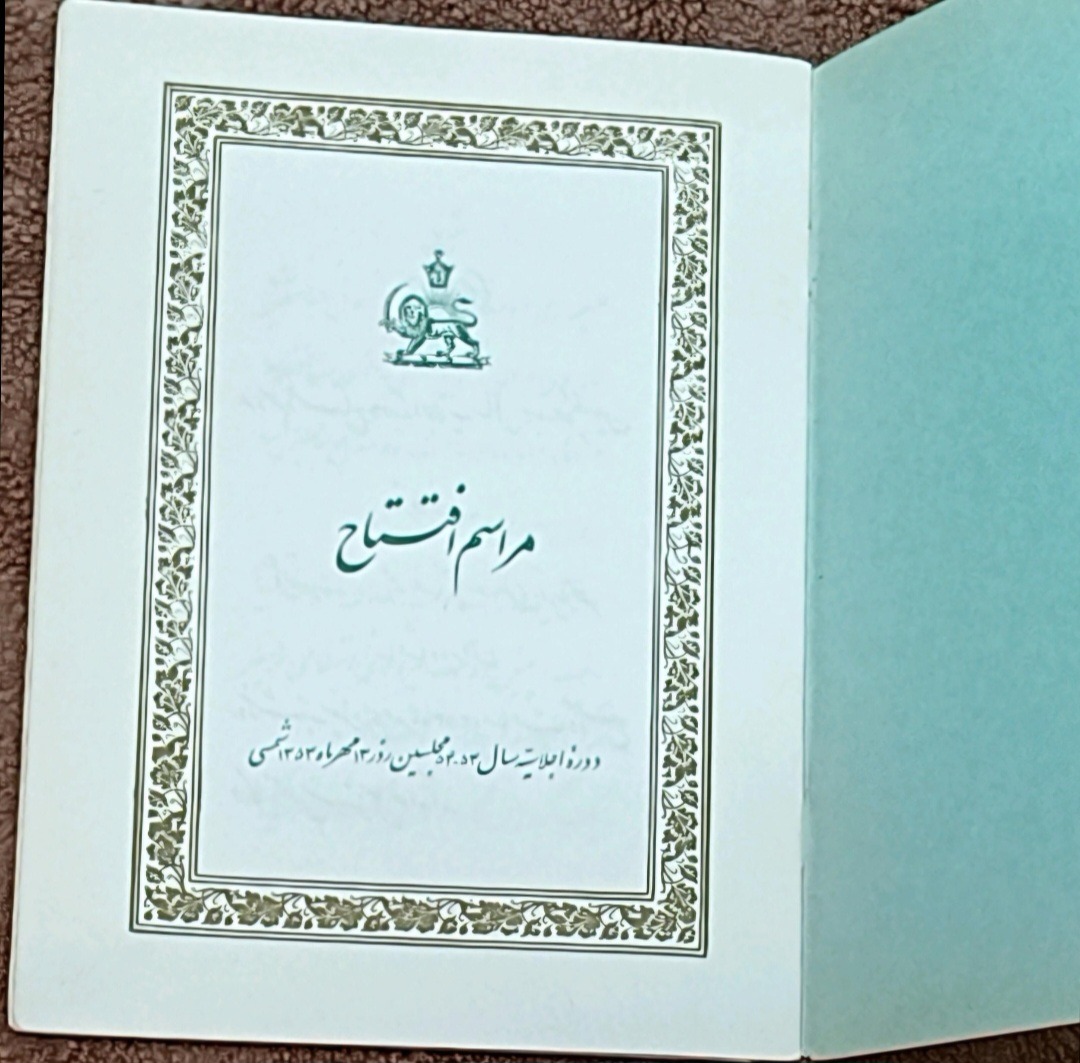 مراسم افتتاح
دوره اجلاسیه سال ۵۴-۵۳ مجلسین روز ۱۳ مهرماه ۱۳۵۳ شمسی